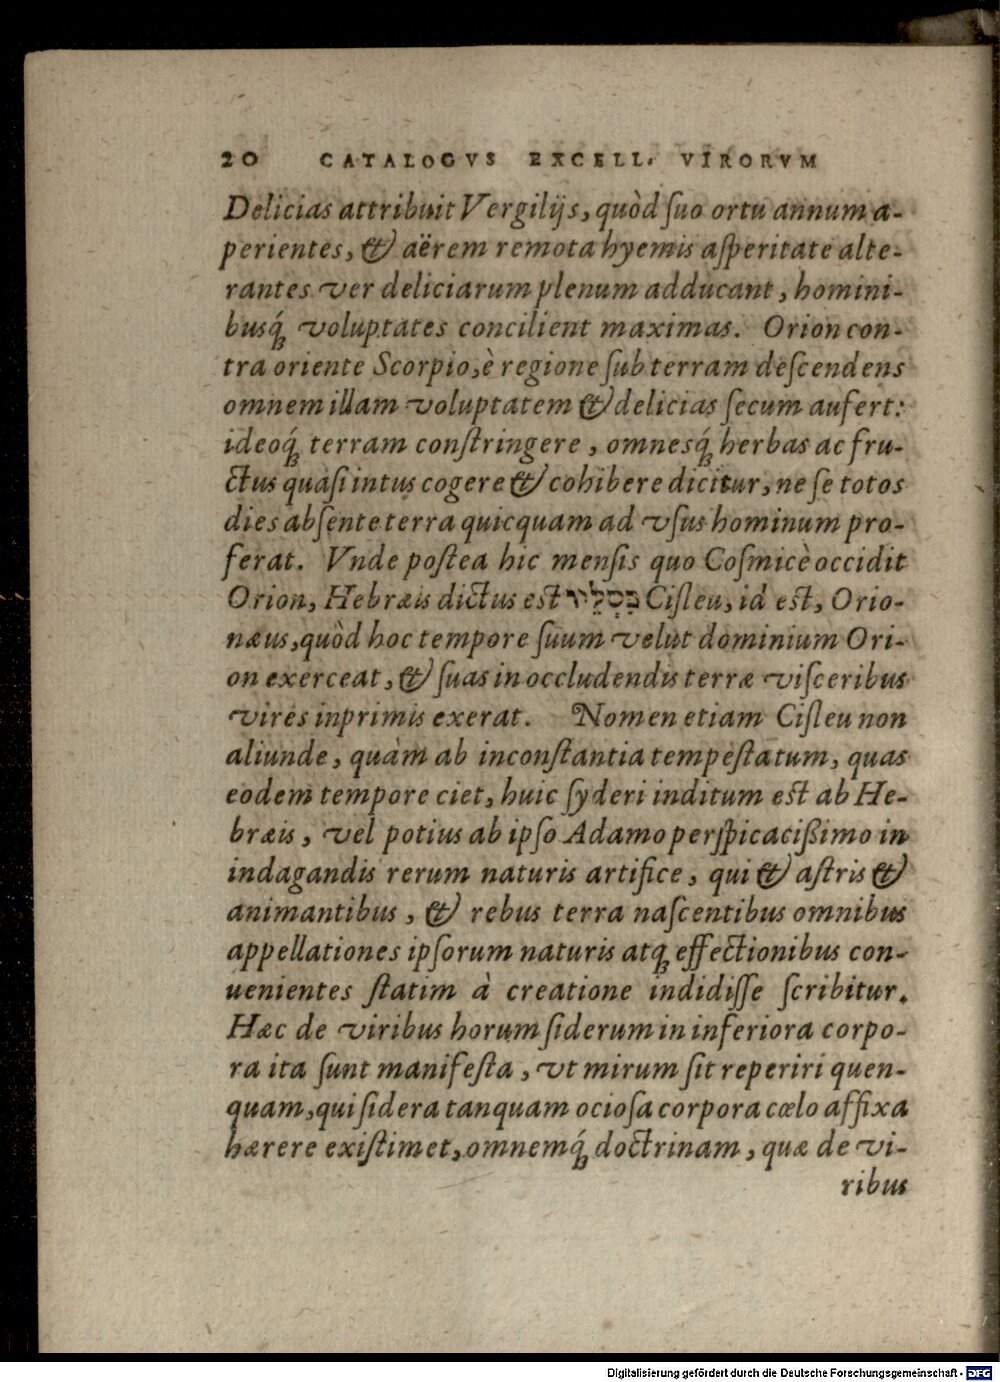 20 CATALOGVS EXCELL. VIRORVM
Delicias attribuit Vergilijs, quòd ſuo ortu annum a-
perientes, & aërem remota hyemis aſperitate alte-
rantes ver deliciarum plenum adducant, homini-
busq́ꝫ voluptates concilient maximas. Orion con-
tra oriente Scorpio, è regione ſub terram deſcendens
omnem illam voluptatem & delicias ſecum aufert:
ideoq́ꝫ terram conſtringere, omnesq́ꝫ herbas ac fru-
ctus quaſi intus cogere & cohibere dicitur, ne ſe totos
dies abſente terra quicquam ad vſus hominum pro-
ferat. Vnde poſtea hic menſis quo Coſmicè occidit
Orion, Hebræis dictus est כִּסְלֵיו Ciſleu, id est, Orio-
næus, quòd hoc tempore ſuum velut dominium Ori-
on exerceat, & ſuas in occludendis terræ viſceribus
vires inprimis exerat. Nomen etiam Ciſleu non
aliunde, quàm ab inconſtantia tempeſtatum, quas
eodem tempore ciet, huic ſyderi inditum est ab He-
bræis, vel potius ab ipſo Adamo perſpicacißimo in
indagandis rerum naturis artifice, qui & aſtris &
animantibus, & rebus terra naſcentibus omnibus
appellationes ipſorum naturis atqꝫ effectionibus con-
uenientes ſtatim à creatione indidiſſe ſcribitur.
Hæc de viribus horum ſiderum in inferiora corpo-
ra ita ſunt manifeſta, vt mirum ſit reperiri quen-
quam, qui ſidera tanquam ocioſa corpora cœlo affixa
hærere exiſtimet, omnemq́ꝫ doctrinam, quæ de vi-
ribus
Digitalisierung gefördert durch die Deutsche Forschungsgemeinschaft - DFG